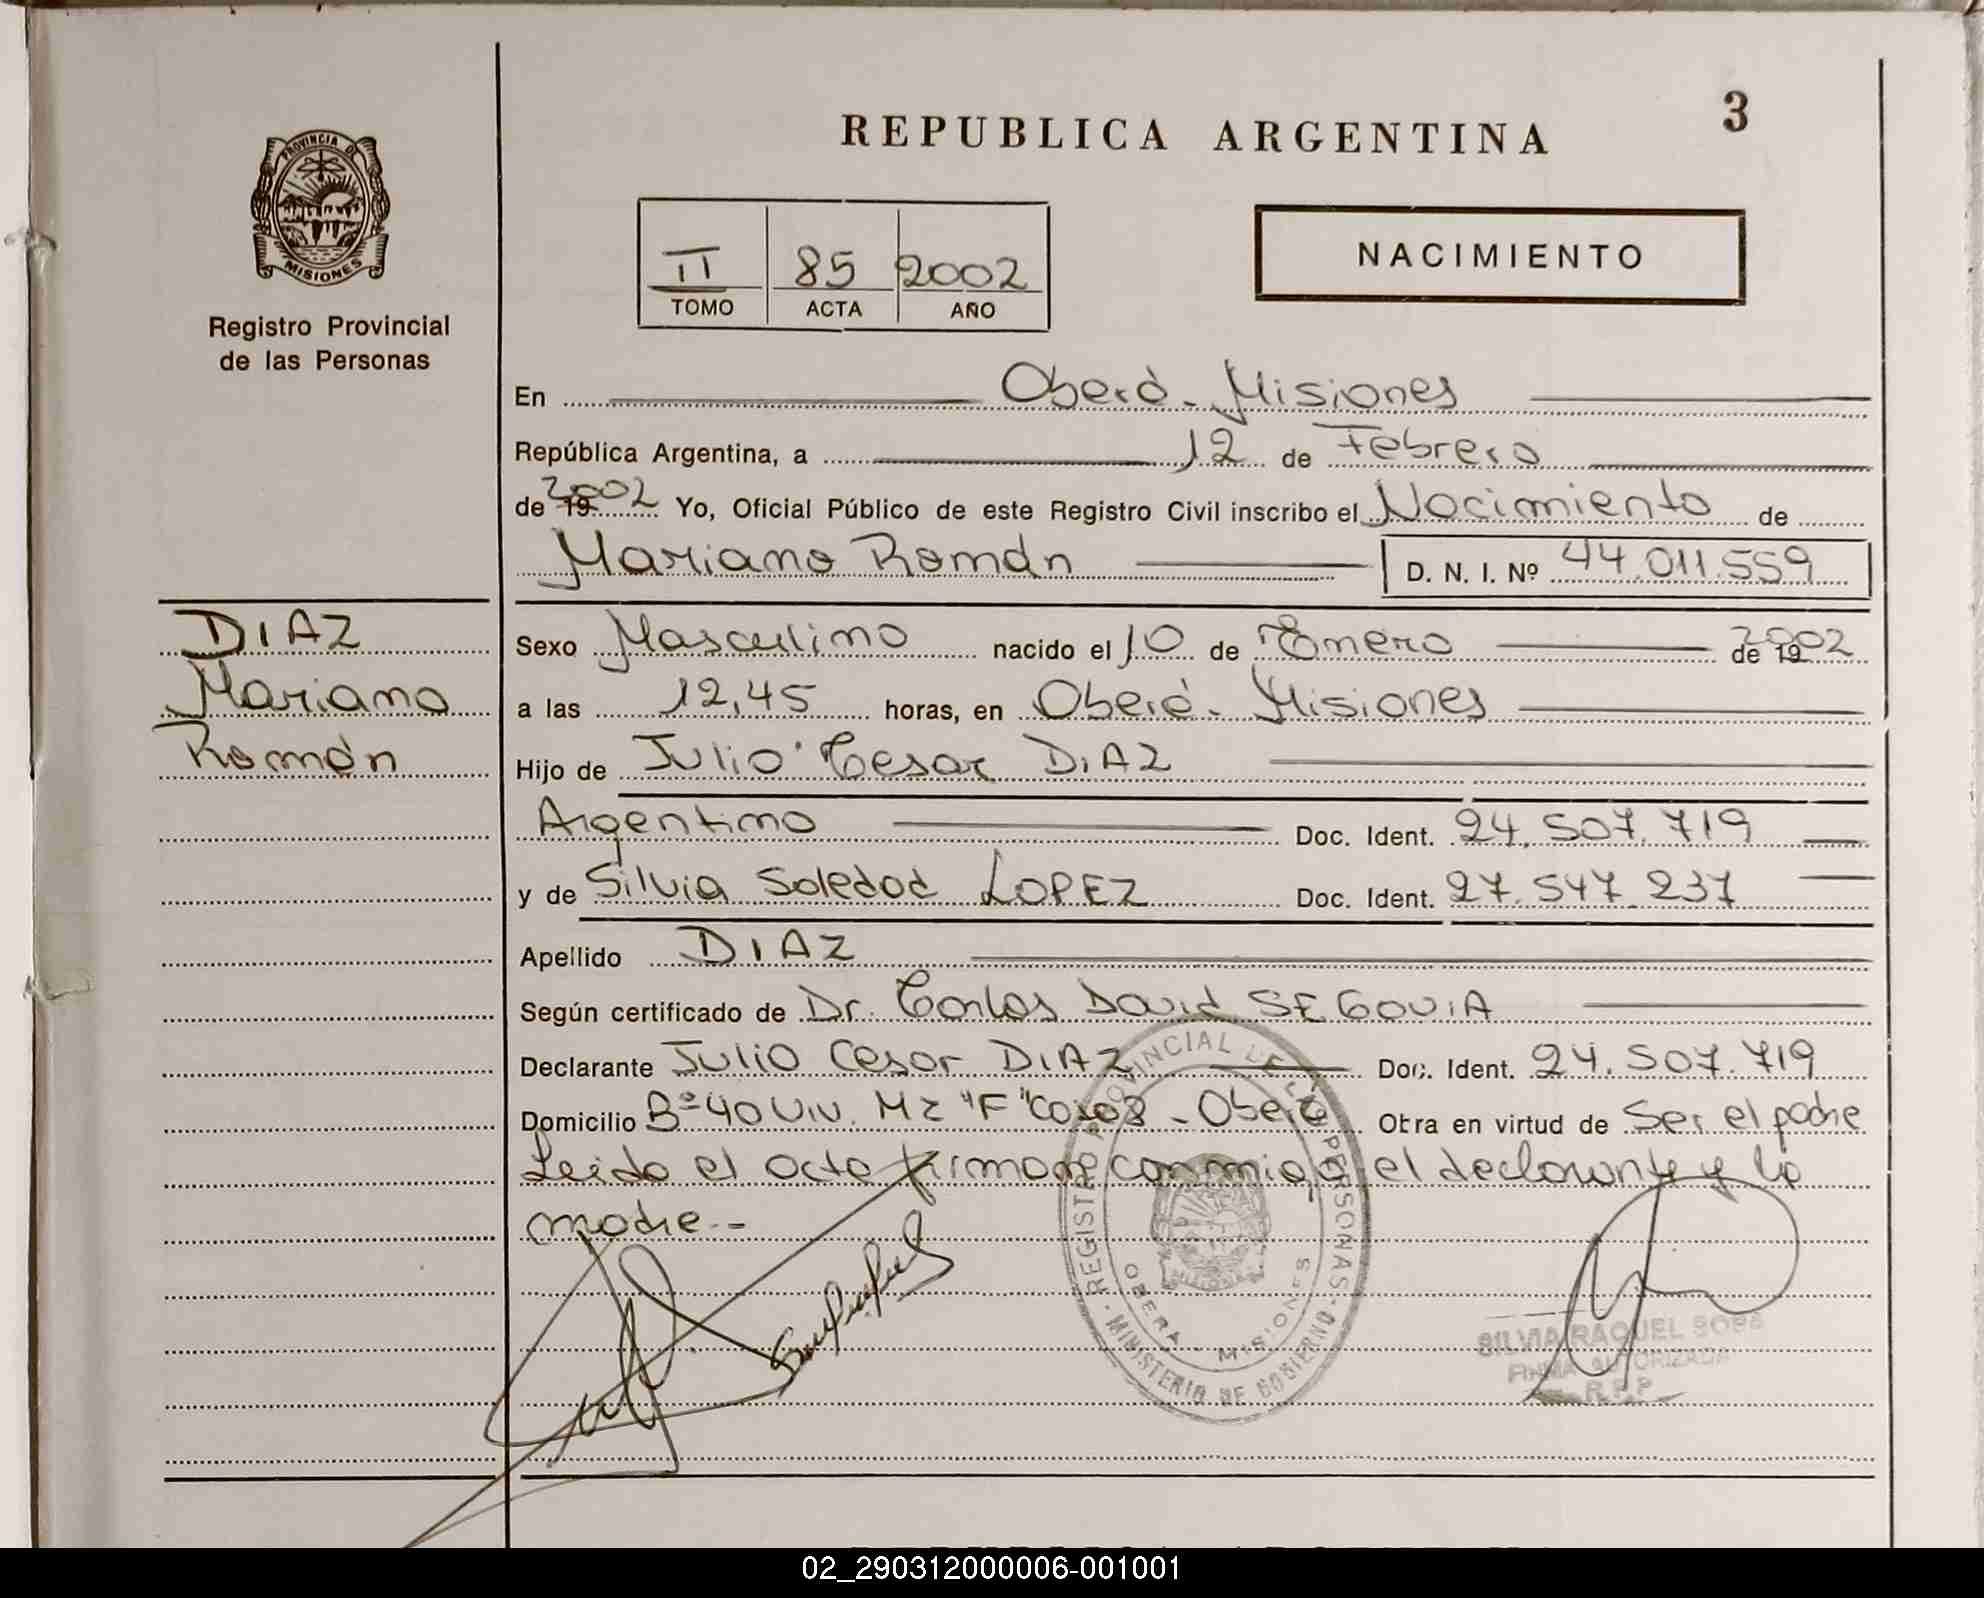 3
REPUBLICA ARGENTINA
PROVINCIA DE
MISIONES
Registro Provincial
de las Personas
NACIMIENTO
II 85 2002
TOMO ACTA AÑO
En Oberá - Misiones
República Argentina, a 12 de Febrero
de 19 2002 Yo, Oficial Público de este Registro Civil inscribo el Nacimiento de
Mariano Román D. N. I. Nº 44.011.559
DIAZ
Mariano
Román
Sexo Masculino nacido el 10 de Enero de 19 2002
a las 12,45 horas, en Oberá - Misiones
Hijo de Julio Cesar DIAZ
Argentino Doc. Ident. 24.507.719
y de Silvia Soledad LOPEZ Doc. Ident. 27.547.237
Apellido DIAZ
Según certificado de Dr. Carlos David SEGOVIA
Declarante Julio Cesar DIAZ Doc. Ident. 24.507.719
Domicilio Bº 40 Viv. Mz "F" casa 8 - Oberá Obra en virtud de Ser el padre
Leido el acta firman conmigo el declarante y la
madre.-
REGISTRO PROVINCIAL DE LAS PERSONAS - MINISTERIO DE GOBIERNO -
OBERA - MISIONES
SILVIA RAQUEL SOSA
FIRMA AUTORIZADA
R.P.P.
02_290312000006-001001